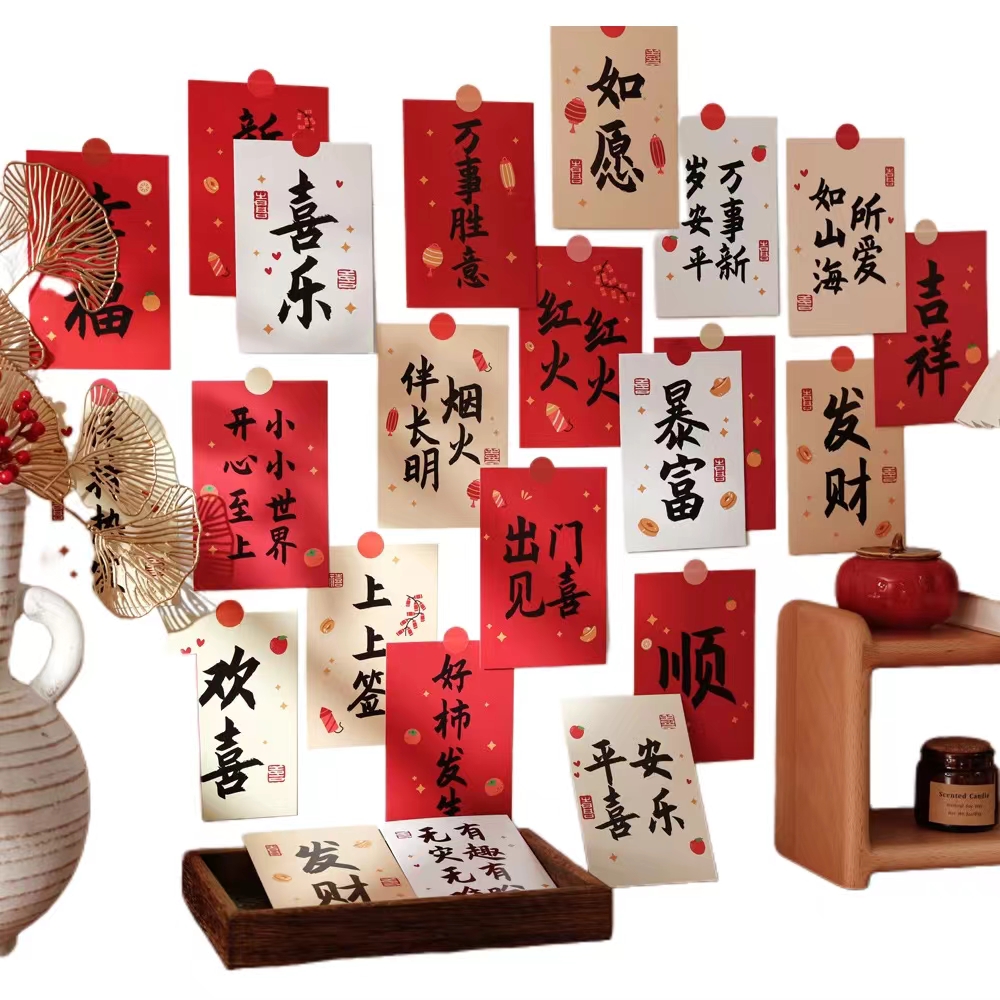 如愿
新
喜乐
万事胜意
万事新
岁安平
所爱
如山海
福
红红
火火
吉祥
烟火
伴长明
暴富
发财
小小世界
开心至上
门喜
出见
上上签
顺
欢喜
好柿发生
安乐
平喜
发财
有趣有
无灾无
Scented Candle